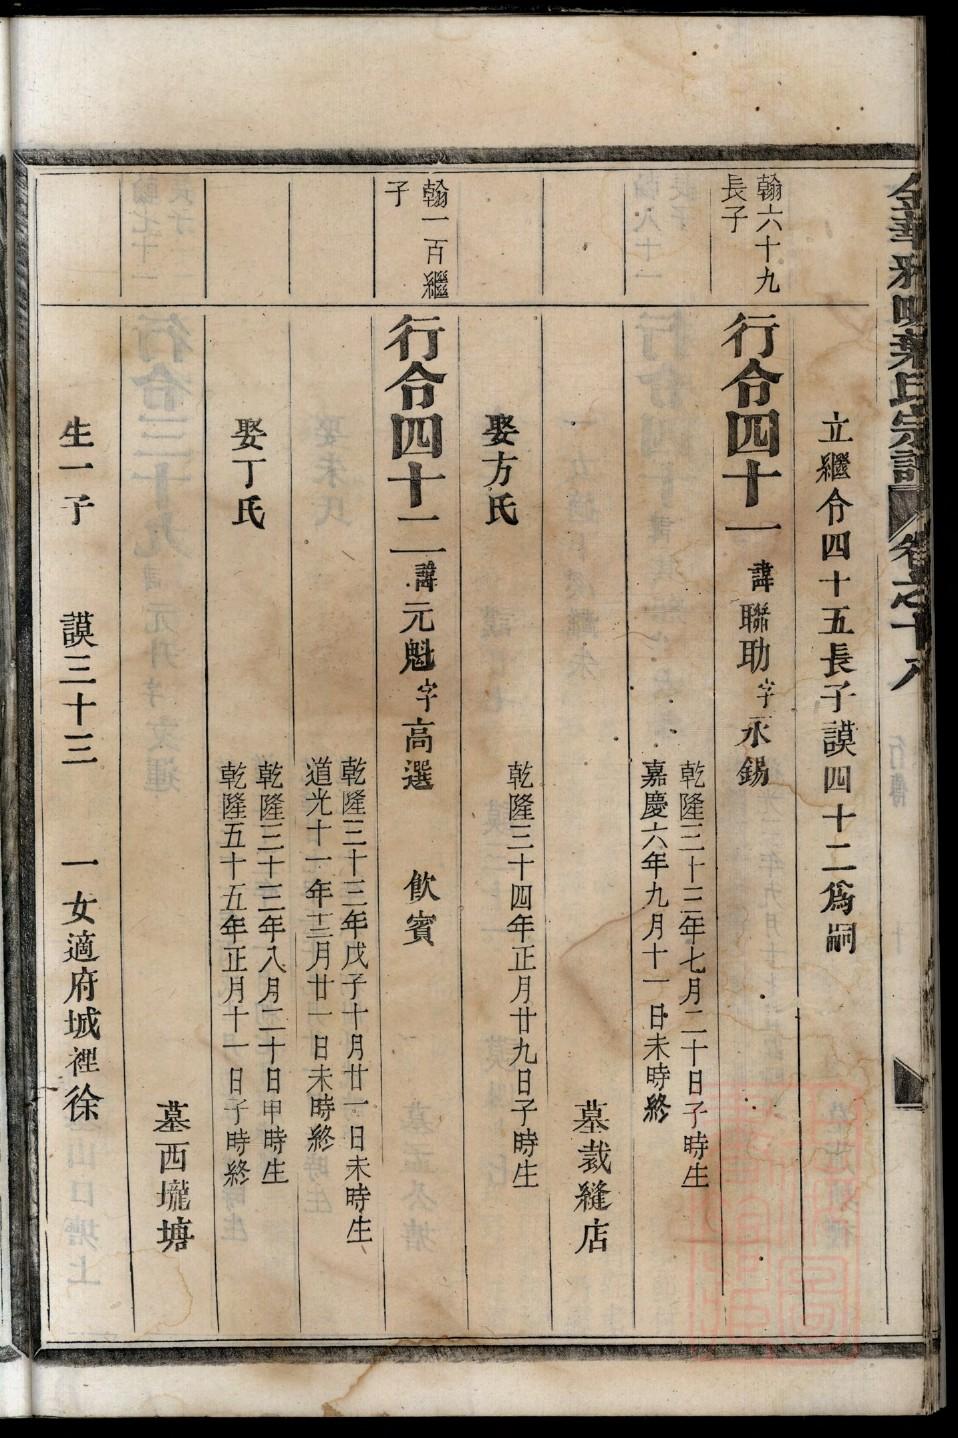 立繼令四十五長子謨四十二爲嗣
翰六十九
長子
行令四十一 諱聯助字永錫
乾隆三十三年七月二十日子時生
嘉慶六年九月十一日未時終
墓裁縫店
娶方氏
乾隆三十四年正月廿九日子時生
翰一百繼
子
行令四十二 諱元魁字高選 飲賓
乾隆三十三年戊子十月廿一日未時生
道光十一年十二月廿一日未時終
娶丁氏
乾隆三十三年八月二十日申時生
乾隆五十五年正月十一日子時終
墓西壠塘
生一子 謨三十三 一女適府城裡徐